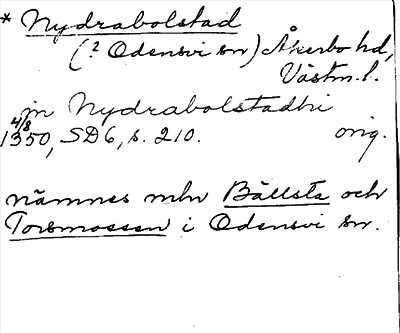 * Nydrabolstad
(? Odensvi sn) Åkerbo hd,
Västm. l.
in Nydrabolstadhi
4/8 1350, SD 6, s. 210. orig.
nämnes mln Bällsta och
Torsmossen i Odensvi sn.